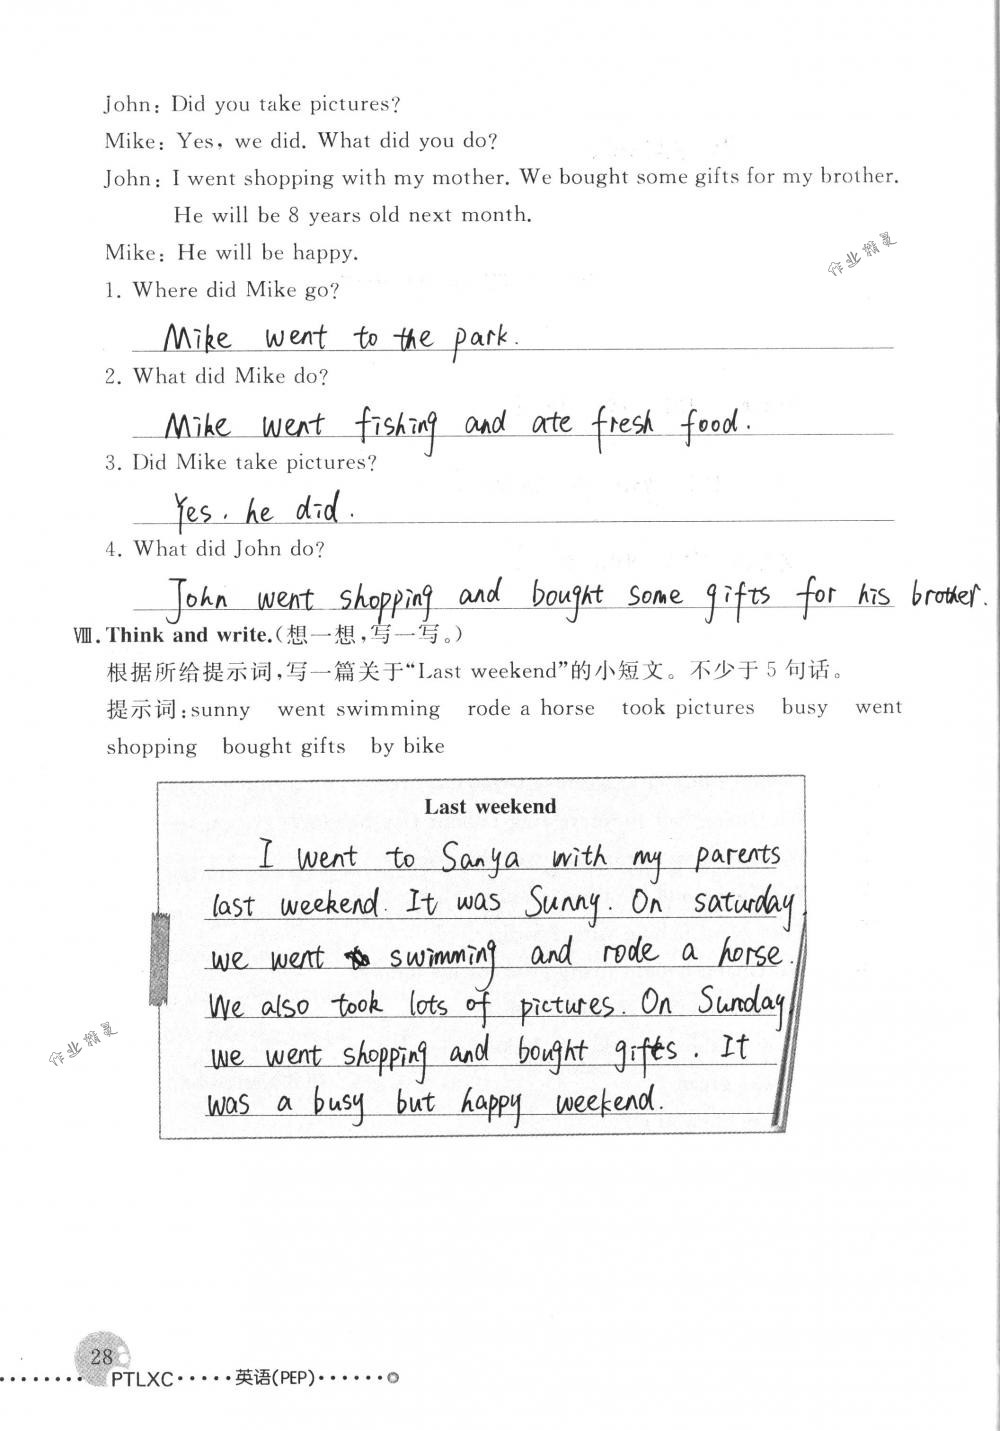 John: Did you take pictures?
Mike: Yes, we did. What did you do?
John: I went shopping with my mother. We bought some gifts for my brother.
He will be 8 years old next month.
Mike: He will be happy.
作业精灵
1. Where did Mike go?
Mike went to the park.
2. What did Mike do?
Mike went fishing and ate fresh food.
3. Did Mike take pictures?
Yes. he did.
4. What did John do?
John went shopping and bought some gifts for his brother.
Ⅷ. Think and write.(想一想,写一写。)
根据所给提示词,写一篇关于“Last weekend”的小短文。不少于 5 句话。
提示词:sunny went swimming rode a horse took pictures busy went
shopping bought gifts by bike
Last weekend
I went to Sanya with my parents
last weekend. It was Sunny. On saturday
we went swimming and rode a horse.
We also took lots of pictures. On Sunday
we went shopping and bought gifts. It
was a busy but happy weekend.
作业精灵
28
PTLXC·····英语(PEP)······